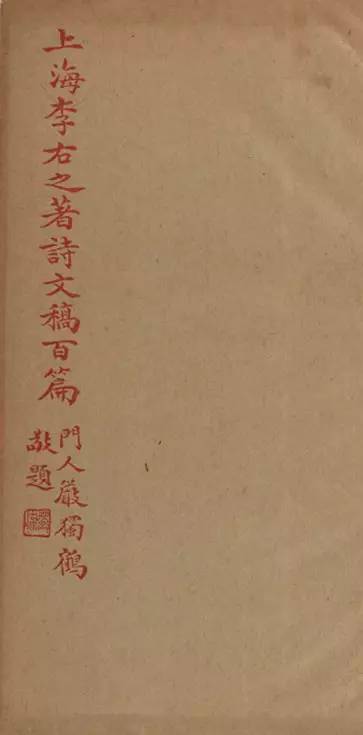 上海李右之著詩文稿百篇
門人嚴獨鶴
敬題